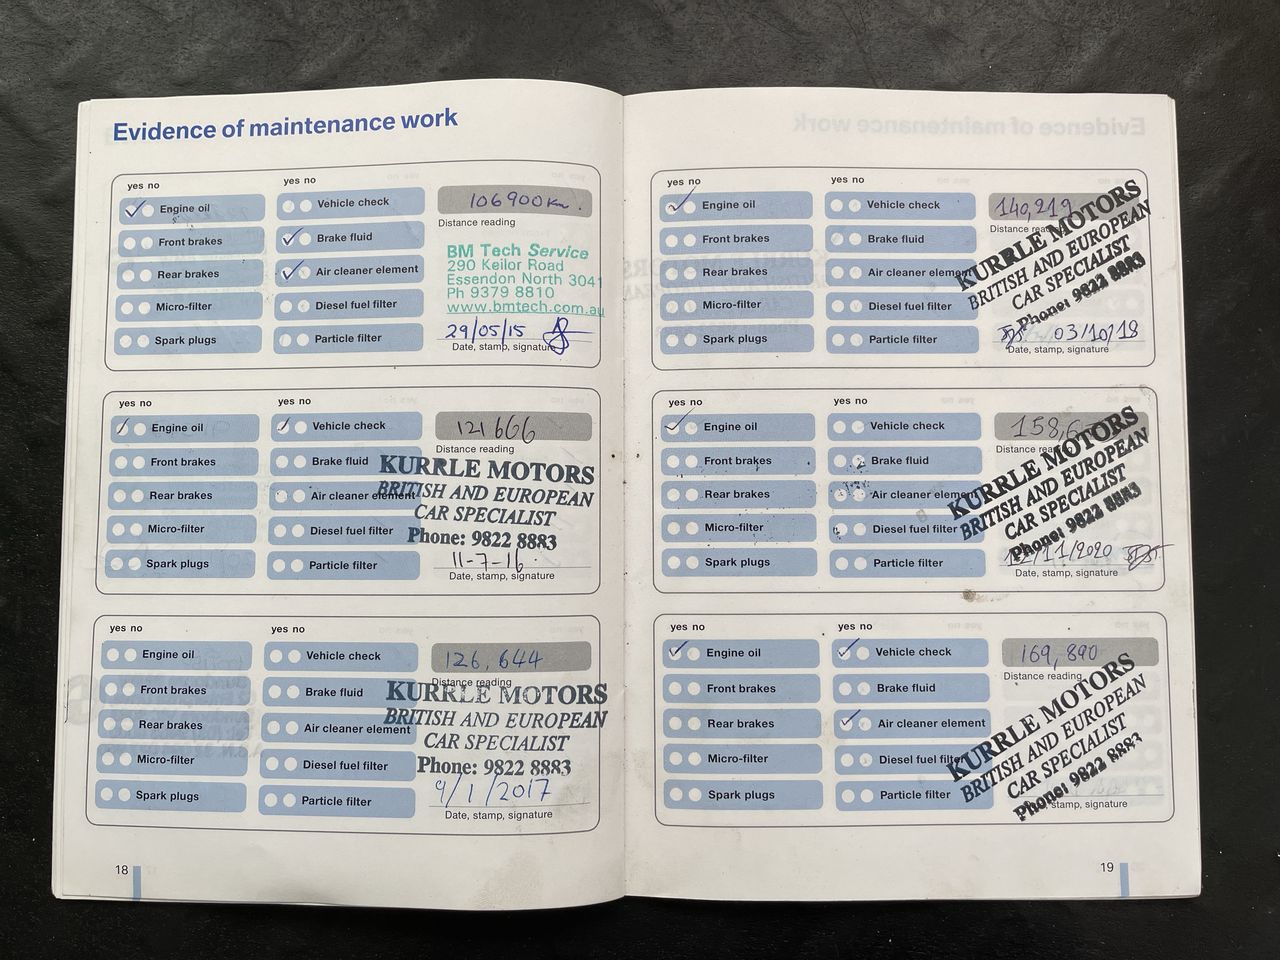 Evidence of maintenance work
yes no
yes no
Engine oil
Vehicle check
106900 km.
Distance reading
Front brakes
Brake fluid
Rear brakes
Air cleaner element
Micro-filter
Diesel fuel filter
Spark plugs
Particle filter
BM Tech Service
290 Keilor Road
Essendon North 3041
Ph 9379 8810
www.bmtech.com.au
29/05/15
Date, stamp, signature
yes no
yes no
Engine oil
Vehicle check
121 666
Distance reading
Front brakes
Brake fluid
Rear brakes
Air cleaner element
Micro-filter
Diesel fuel filter
Spark plugs
Particle filter
KURRLE MOTORS
BRITISH AND EUROPEAN
CAR SPECIALIST
Phone: 9822 8883
11-7-16
Date, stamp, signature
yes no
yes no
Engine oil
Vehicle check
126,644
Distance reading
Front brakes
Brake fluid
Rear brakes
Air cleaner element
Micro-filter
Diesel fuel filter
Spark plugs
Particle filter
KURRLE MOTORS
BRITISH AND EUROPEAN
CAR SPECIALIST
Phone: 9822 8883
9/1/2017
Date, stamp, signature
18
yes no
yes no
Engine oil
Vehicle check
140,219
Distance
Front brakes
Brake fluid
Rear brakes
Air cleaner element
Micro-filter
Diesel fuel filter
Spark plugs
Particle filter
KURRLE MOTORS
BRITISH AND EUROPEAN
CAR SPECIALIST
Phone: 9822 8883
03/10/18
Date, stamp, signature
yes no
yes no
Engine oil
Vehicle check
Distance
Front brakes
Brake fluid
Rear brakes
Air cleaner element
Micro-filter
Diesel fuel filter
Spark plugs
Particle filter
KURRLE MOTORS
BRITISH AND EUROPEAN
CAR SPECIALIST
Phone: 9822 8883
12/11/2020
Date, stamp, signature
yes no
yes no
Engine oil
Vehicle check
169,890
Distance reading
Front brakes
Brake fluid
Rear brakes
Air cleaner element
Micro-filter
Diesel fuel filter
Spark plugs
Particle filter
KURRLE MOTORS
BRITISH AND EUROPEAN
CAR SPECIALIST
Phone: 9822 8883
stamp, signature
19